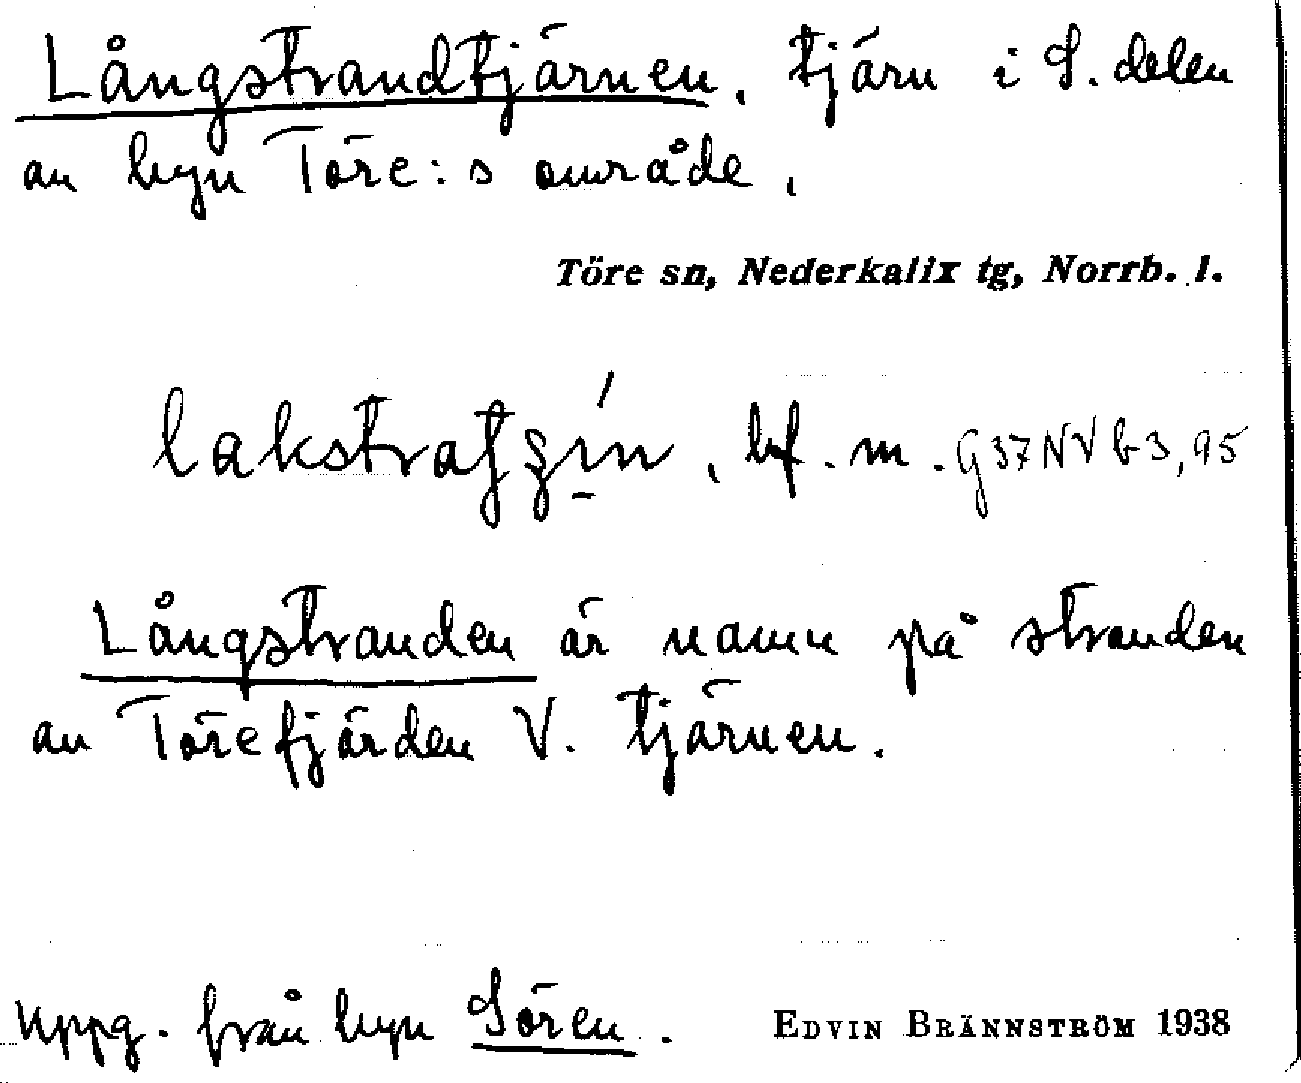 Långstrandtjärnen, tjärn i S. delen
av byn Töre:s område.
Töre sn, Nederkalix tg, Norrb. l.
bf. m. G37NVb3,95
Långstranden är namn på stranden
av Törefjärden V. tjärnen.
Uppg. från byn Sören.
EDVIN BRÄNNSTRÖM 1938